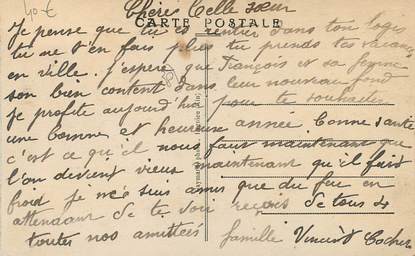 40 €
Chère Belle sœur
CARTE POSTALE
Je pense que tu es rentrer dans ton logis
tu ne t'en fais plus tu prends tes vacances
en ville. J'espere que François et sa femme
son bien content dans leur nouveau fond
je profite aujourd'hui pour te souhaiter
une bonne et heureuse année. Bonne santé
c'est ce qu'il nous faut maintenant que
l'on devient vieux maintenant qu'il fait
froid je ne suis amis que du feu en
attendant de te voir reçois de tous
toutes nos amitiées
famille Vincent